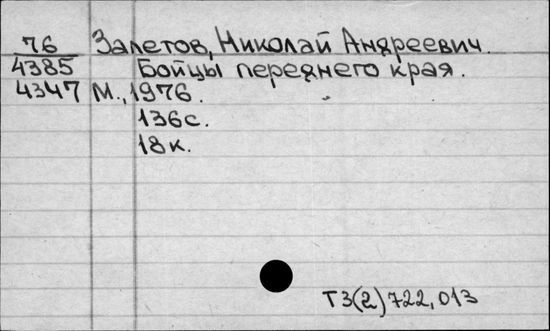 76 Залетов, Николай Андреевич.
4385 Бойцы переднего края.
4347 М., 1976.
136с.
18к.
Т3(2)722,013